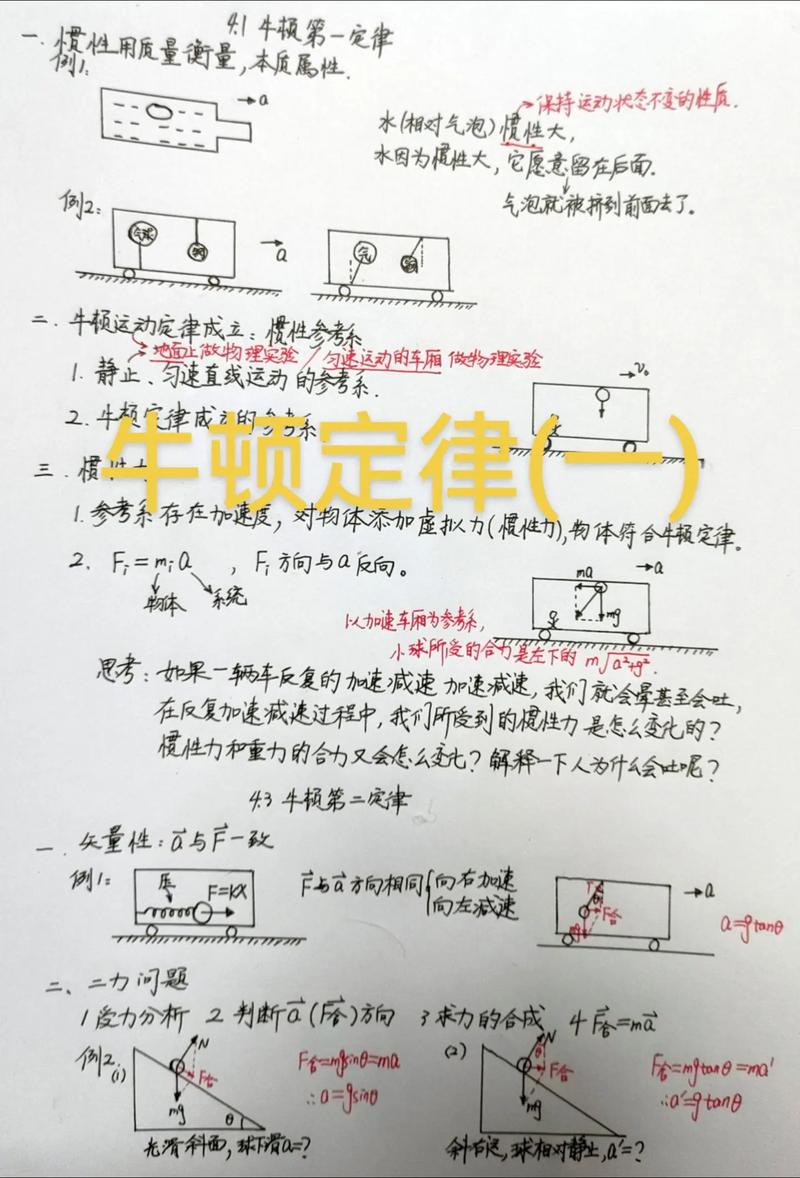 4.1 牛顿第一定律
一. 惯性用质量衡量,本质属性.
例1:
a
保持运动状态不变的性质.
水(相对气泡)惯性大,
水因为惯性大,它愿意留在后面.
气泡就被挤到前面去了。
例2:
气球
a
气
二. 牛顿运动定律成立:惯性参考系
地面上做物理实验/匀速运动的车厢 做物理实验
1. 静止、匀速直线运动的参考系.
v₀
2. 牛顿定律成立的参考系
牛顿定律(一)
三. 惯性力
1. 参考系存在加速度,对物体添加虚拟力(惯性力),物体符合牛顿定律。
2. Fᵢ=mᵢa ,Fᵢ方向与a反向。
物体 系统
ma a
mg
以加速车厢为参考系,
小球所受的合力是左下的 m√a²+g².
思考:如果一辆车反复的加速减速 加速减速,我们就会晕甚至会吐,
在反复加速减速过程中,我们所受到的惯性力是怎么变化的?
惯性力和重力的合力又会怎么变化?解释一下人为什么会吐呢?
4.3 牛顿第二定律
一. 矢量性:a⃗与F⃗一致
例1:
压 F=kx
F⃗与a⃗方向相同{向右加速
向左减速
T θ F合 mg
a
a=gtanθ
二、二力问题
1 受力分析 2 判断a⃗(F⃗合)方向 3 求力的合成 4 F⃗合=ma⃗
例2.
(1)
N
F合
mg
θ
F合=mgsinθ=ma
∴a=gsinθ
光滑斜面,球下滑a=?
(2)
N
θ
F合
mg
F合=mgtanθ=ma'
∴a'=gtanθ
球相对静止,a'=?